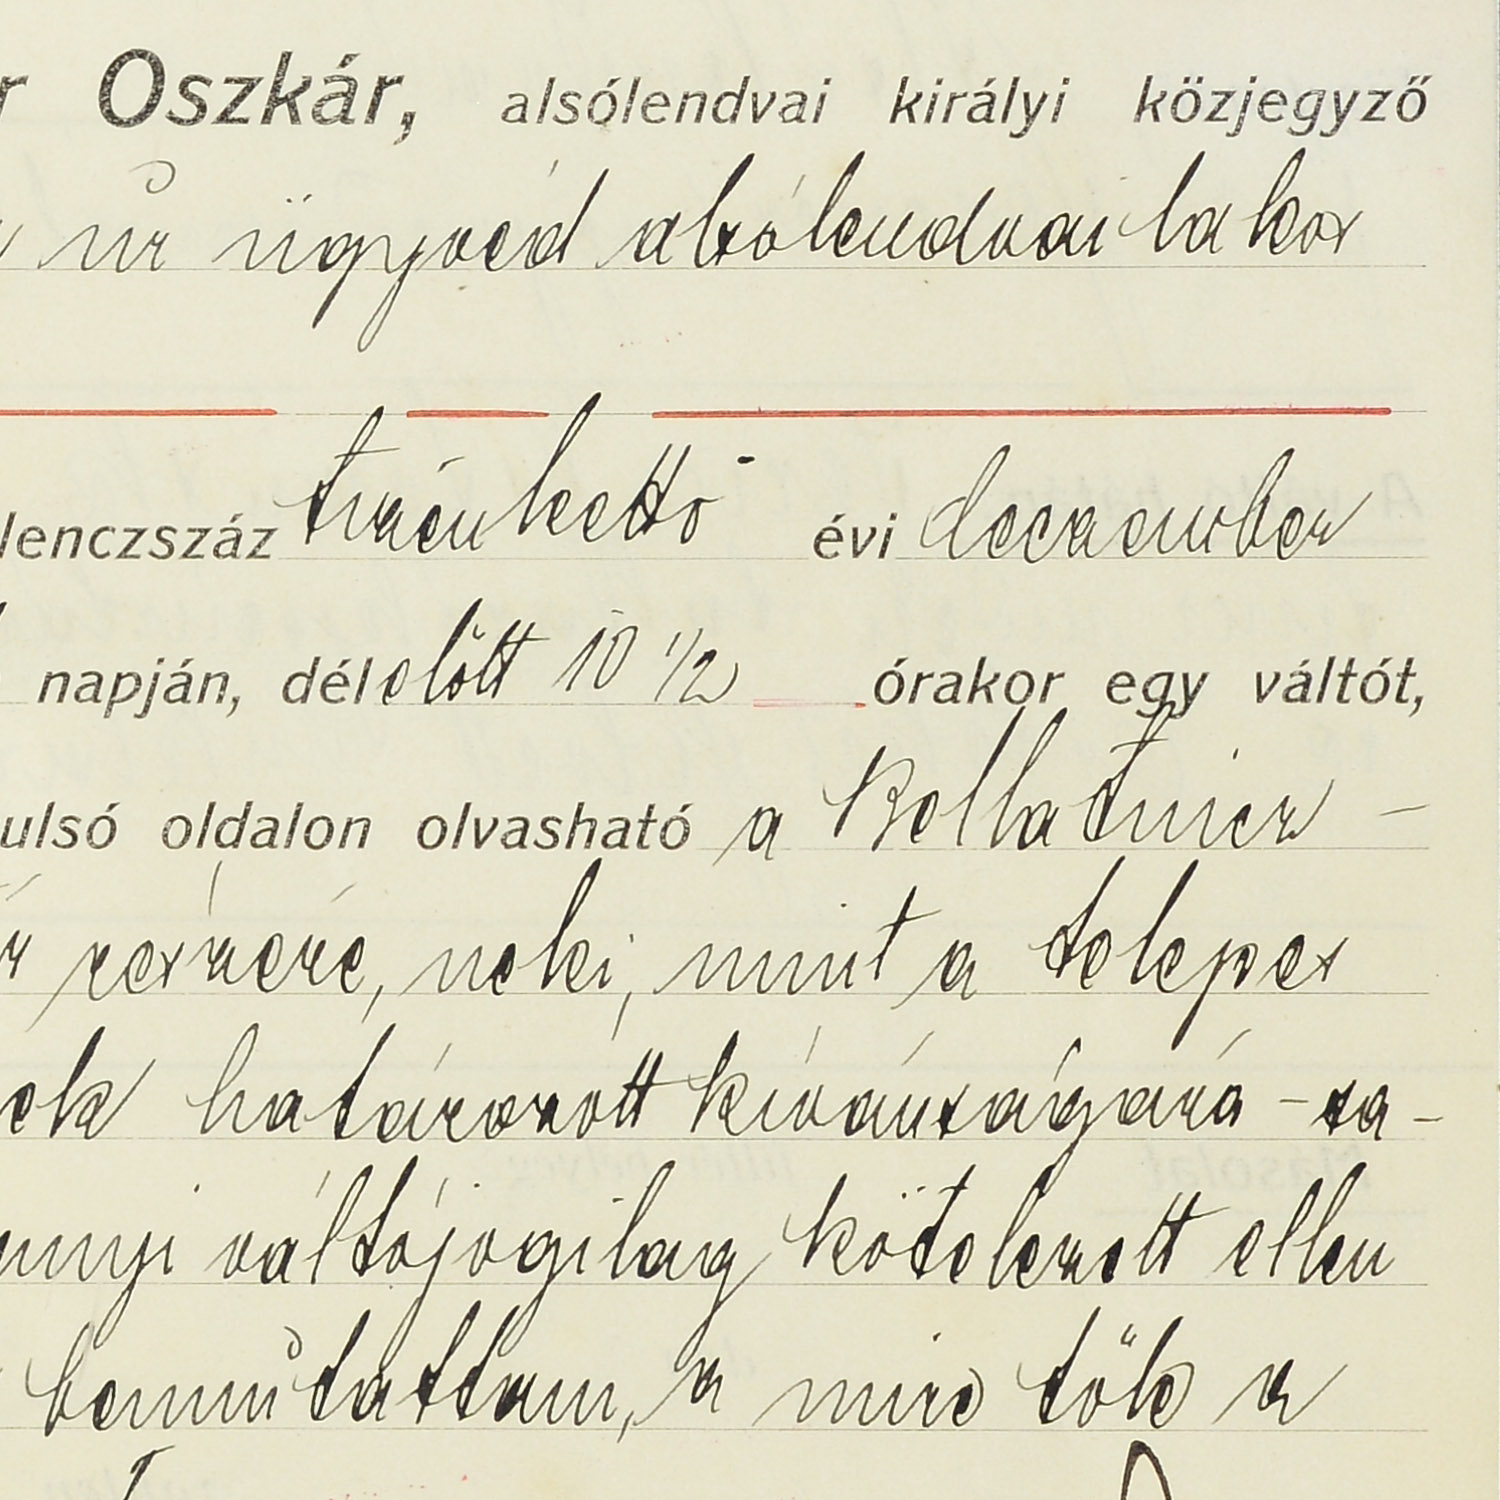 r Oszkár, alsólendvai királyi közjegyző
úr ügyvéd alsólendvai lakos
lenczszáz tizenkettő évi deczember
napján, délelőtt 10 1/2 órakor egy váltót,
ulsó oldalon olvasható a
részére, neki, mint a telepes
ek határozott kívánságára - sa-
nnyi váltójogilag kötelezett ellen
bemutattam, a mire tőle a